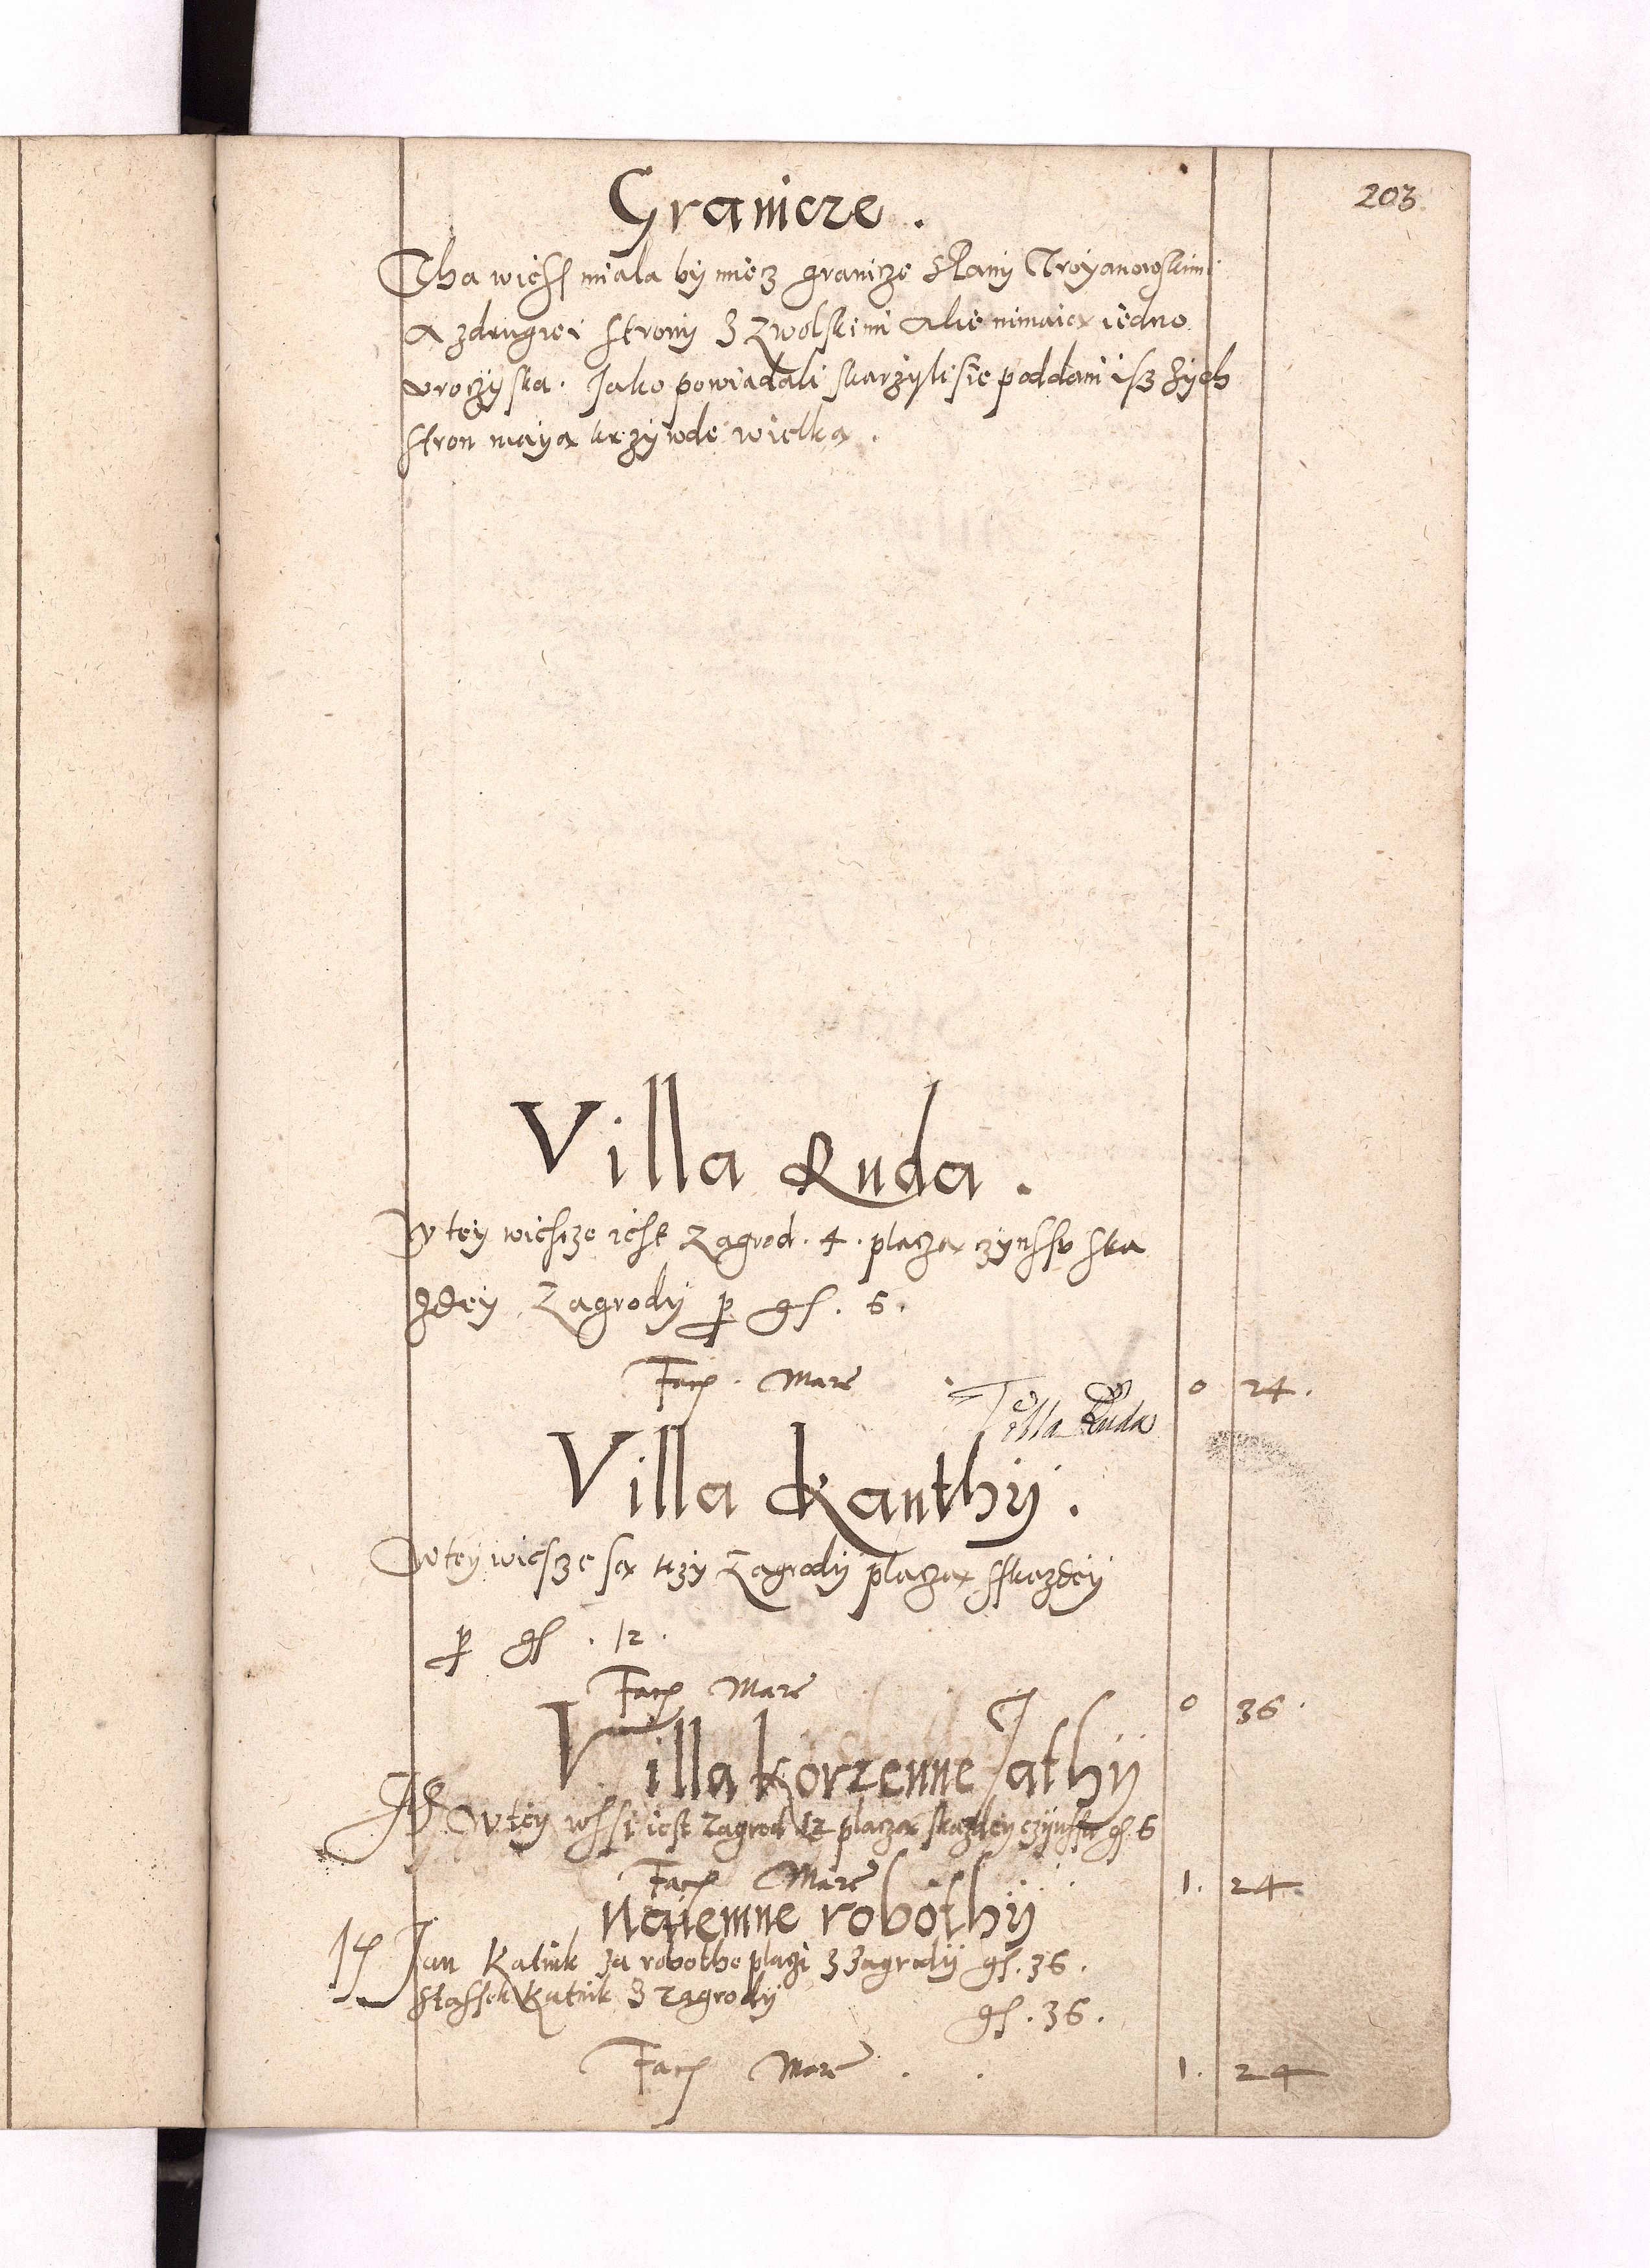 203
Granicze .
Tha wiess miala by miecz granicze s Pany Troyanowskimi
A zdrugiei strony z Zwolskimi Alie nimaią iedno
vroczyska . Jako powiadali skarzylisie poddani isz zych
stron mayą krzywde wielką .
Villa Ruda .
W tey wiesze iest Zagrod . 4 . placzą czynssv ska
zdey Zagrody p gs . 6 .
Facz . Marc . 0 24 .
Villa Ruda
Villa Kanthy .
W tey wiesze są trzy Zagrody placzą sskazdey
p gs . 12 .
Facz Marc 0 36 .
Villa Korzenne Jathy
W tey wssi iest Zagrod 12 placzą skazdey czynssu gs 6
Facz Marc 1 . 24 .
Naiemne robothy
Jan Katnik za robothe placzi z Zagrody gs . 36 .
Stassek Katnik z Zagrody
gs . 36 .
Facz Marc . . 1 . 24